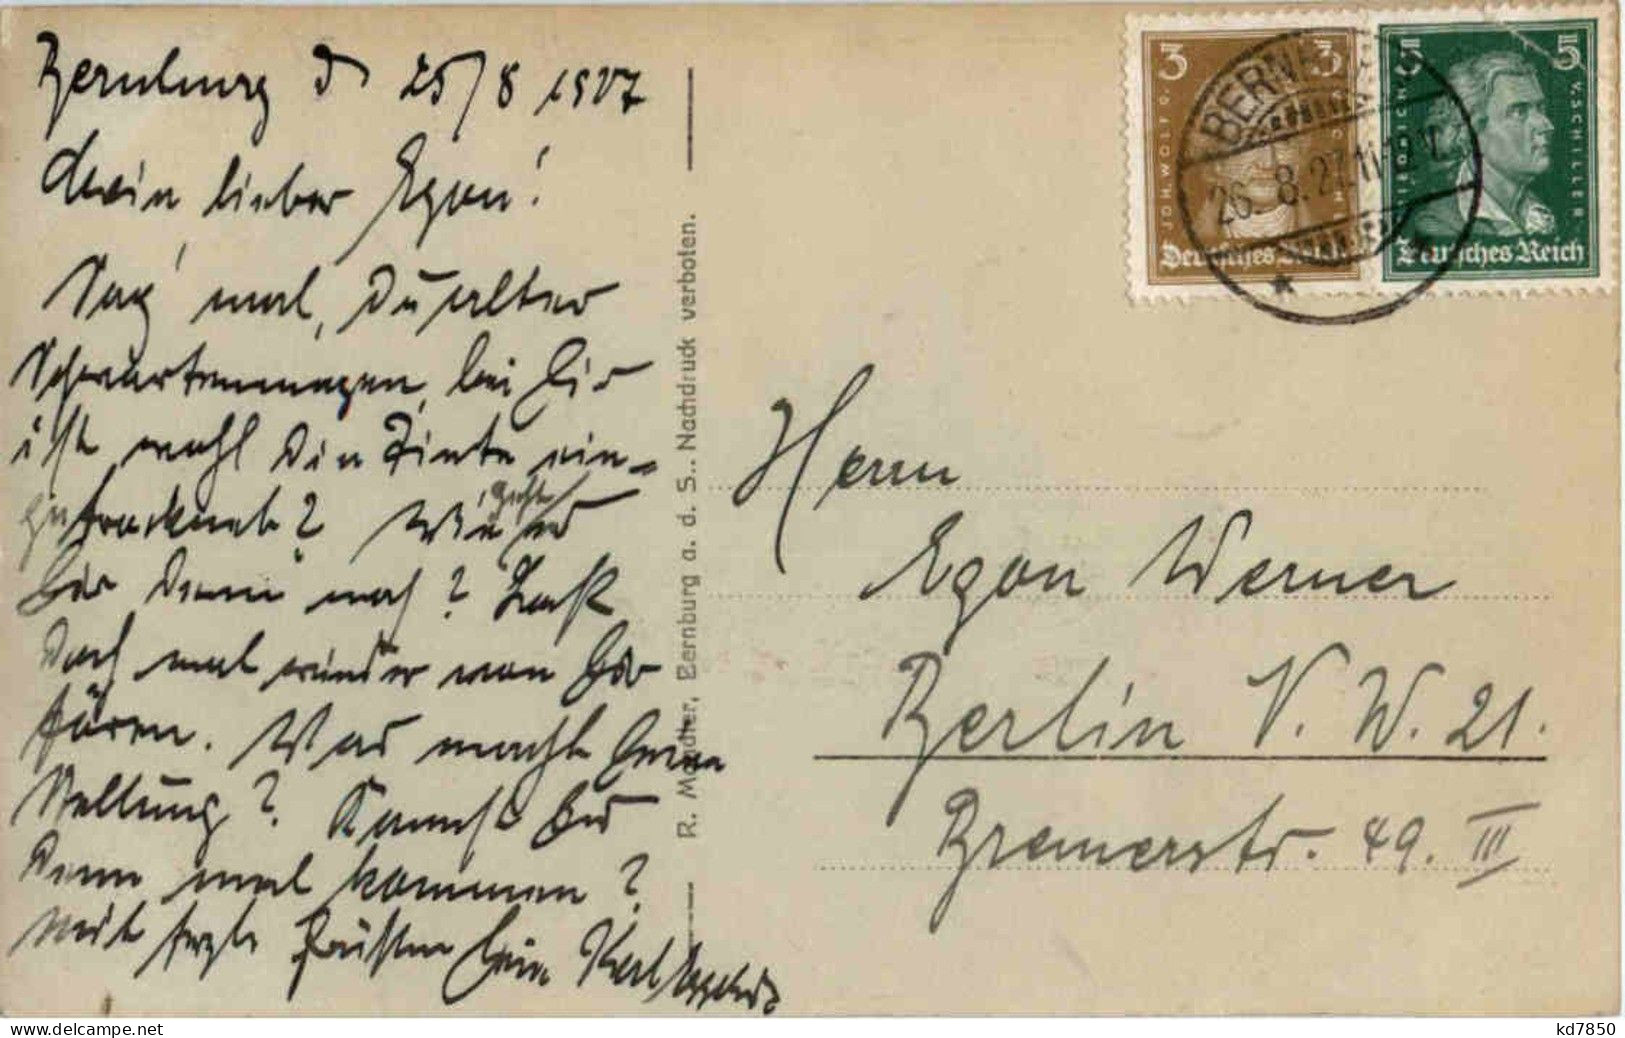 Bernburg d 25/8 1927
Mein lieber Egon!
Sag' mal, Du alter
Schwartenmagen, bei Dir
ist wohl die Tinte ein-
getrocknet? Wie geht es
Dir denn noch? Laß
doch mal wieder von Dir
hören. Was macht Deine
Stellung? Kannst Du
denn mal kommen?
Mit herzl. Grüßen Dein Karl
R. Mendler, Bernburg a. d. S.. Nachdruck verboten.
3 3
JOH. WOLFG.
Deutsches Reich
5 5
FRIEDRICH V. SCHILLER
Deutsches Reich
BERNBURG
26. 8. 27. 11-12 V.
Herrn
Egon Werner
Berlin N. W. 21.
Bremerstr. 49. III
kd7850
www.delcampe.net